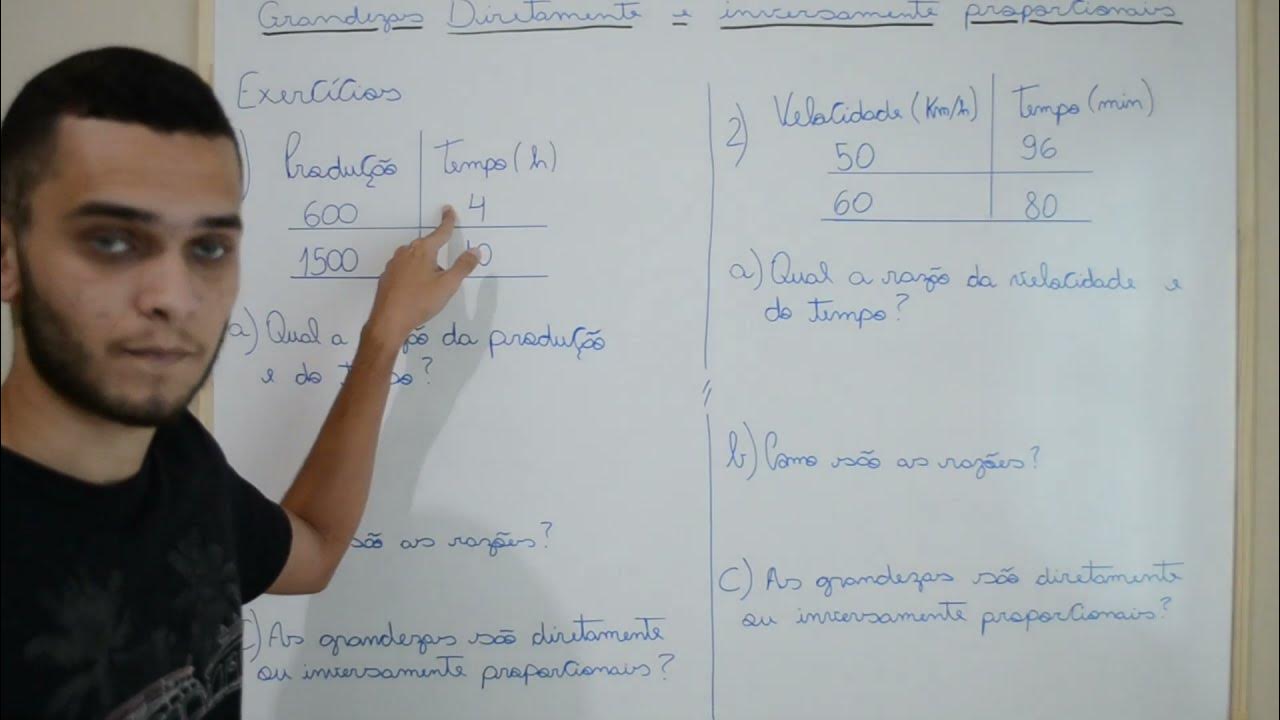 Grandezas Diretamente e inversamente proporcionais
Exercícios
)
Produção Tempo (h)
600 4
1500 10
a) Qual a da produção
e do ?
são as razões?
) As grandezas são diretamente
ou inversamente proporcionais?
2) Velocidade (Km/h) Tempo (min)
50 96
60 80
a) Qual a razão da velocidade e
do tempo?
b) Como são as razões?
C) As grandezas são diretamente
ou inversamente proporcionais?